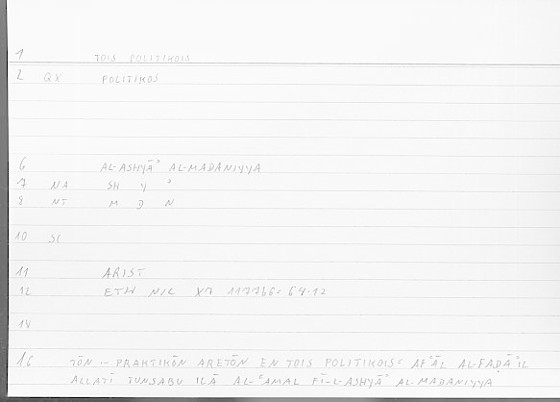 1 TOIS POLITIKOIS
2 QX POLITIKOS
6 AL-ASHYĀʾ AL-MADANIYYA
7 NA SH Y ʾ
8 NT M D N
10 SC
11 ARIST
12 ETH NIC X7 1177b6: 64.12
14
16 TŌN – PRAKTIKŌN ARETŌN EN TOIS POLITIKOIS: AFʿĀL AL-FAḌĀʾIL
ALLATĪ TUNSABU ILĀ AL-ʿAMAL FĪ-L-ASHYĀʾ AL-MADANIYYA